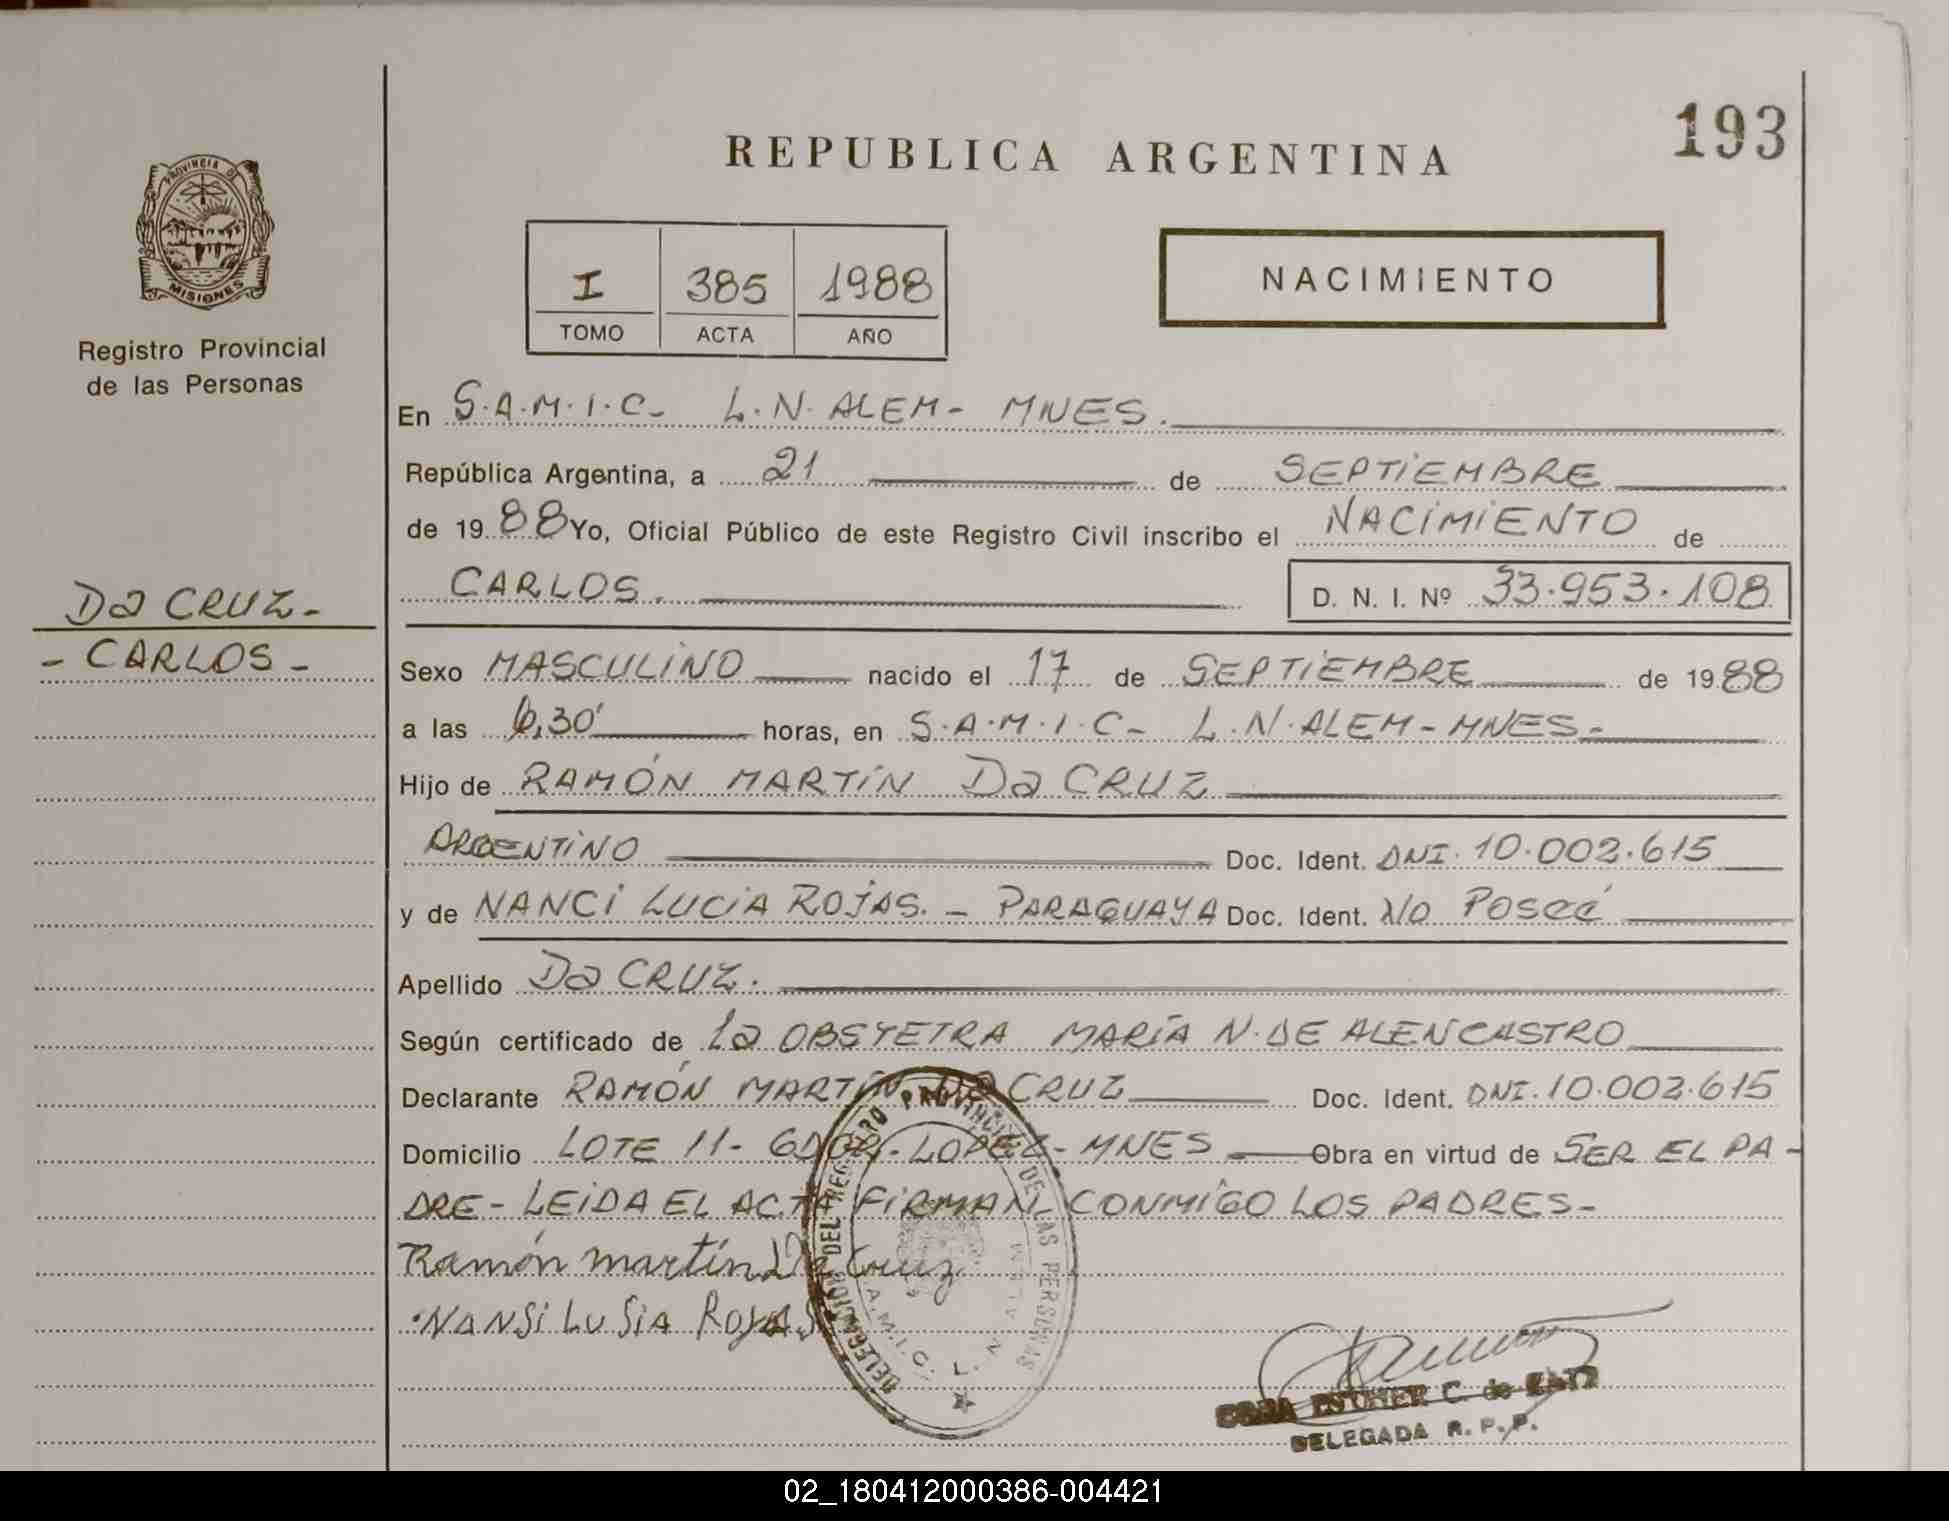 193
REPUBLICA ARGENTINA
PROVINCIA DE
MISIONES
Registro Provincial
de las Personas
I 385 1988
TOMO ACTA AÑO
NACIMIENTO
En S.A.M.I.C- L.N. ALEM- MNES.
República Argentina, a 21 de SEPTIEMBRE
de 1988 Yo, Oficial Público de este Registro Civil inscribo el NACIMIENTO de
CARLOS. D. N. I. Nº 33.953.108
Da CRUZ-
- CARLOS -
Sexo MASCULINO nacido el 17 de SEPTIEMBRE de 1988
a las 6,30' horas, en S.A.M.I.C- L.N. ALEM-MNES-
Hijo de RAMÓN MARTÍN Da CRUZ
ARGENTINO Doc. Ident. DNI. 10.002.615
y de NANCI LUCIA ROJAS. - PARAGUAYA Doc. Ident. No Poseé
Apellido Da CRUZ.
Según certificado de La OBSTETRA MARÍA N. DE ALENCASTRO
Declarante RAMÓN MARTÍN Da CRUZ Doc. Ident. DNI. 10.002.615
Domicilio LOTE 11- GDOR. LOPEZ- MNES Obra en virtud de SER EL PA-
DRE- LEIDA EL ACTA FIRMAN CONMIGO LOS PADRES-
Ramón martín Da Cruz
NANSi LuSiA RoyAS
DELEGACION DEL REGISTRO PROVINCIAL DE LAS PERSONAS
S.A.M.I.C. L. N. ALEM
ESTHER C. de KATZ
DELEGADA R. P. P.
02_180412000386-004421